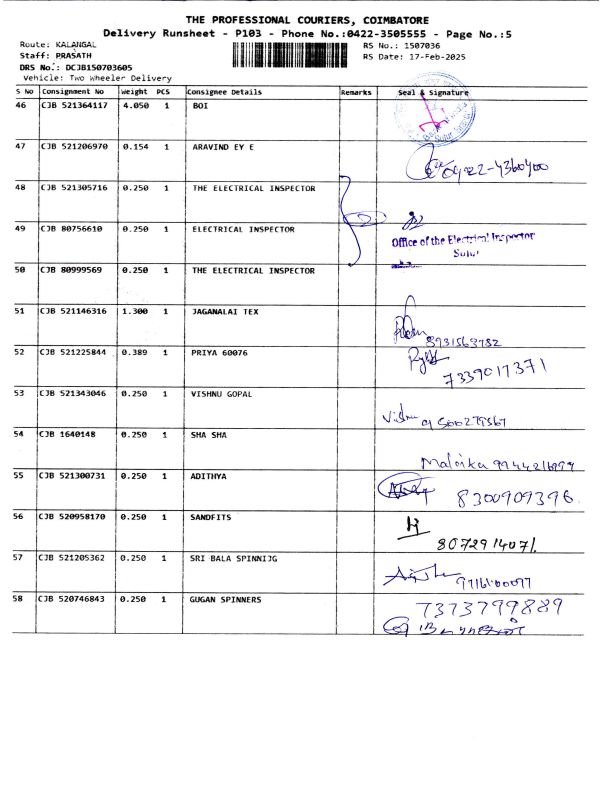 THE PROFESSIONAL COURIERS, COIMBATORE
Delivery Runsheet - P103 - Phone No.:0422-3505555 - Page No.:5
Route: KALANGAL
RS No.: 1507036
Staff: PRASATH
RS Date: 17-Feb-2025
DRS No.: DCJB150703605
Vehicle: Two Wheeler Delivery
S No Consignment No Weight PCS Consignee Details Remarks Seal & Signature
46 CJB 521364117 4.050 1 BOI
47 CJB 521206970 0.154 1 ARAVIND EY E
0422-4360400
48 CJB 521305716 0.250 1 THE ELECTRICAL INSPECTOR
49 CJB 80756610 0.250 1 ELECTRICAL INSPECTOR
Office of the Electrical Inspector
Sulur
50 CJB 80999569 0.250 1 THE ELECTRICAL INSPECTOR
51 CJB 521146316 1.300 1 JAGANALAI TEX
8931563782
52 CJB 521225844 0.389 1 PRIYA 60076
7339017371
53 CJB 521343046 0.250 1 VISHNU GOPAL
Vishnu
54 CJB 1640148 0.250 1 SHA SHA
Malvika
55 CJB 521300731 0.250 1 ADITHYA
8300909396
56 CJB 520958170 0.250 1 SANDFITS
8072914071
57 CJB 521205362 0.250 1 SRI BALA SPINNIJG
58 CJB 520746843 0.250 1 GUGAN SPINNERS
7373799889